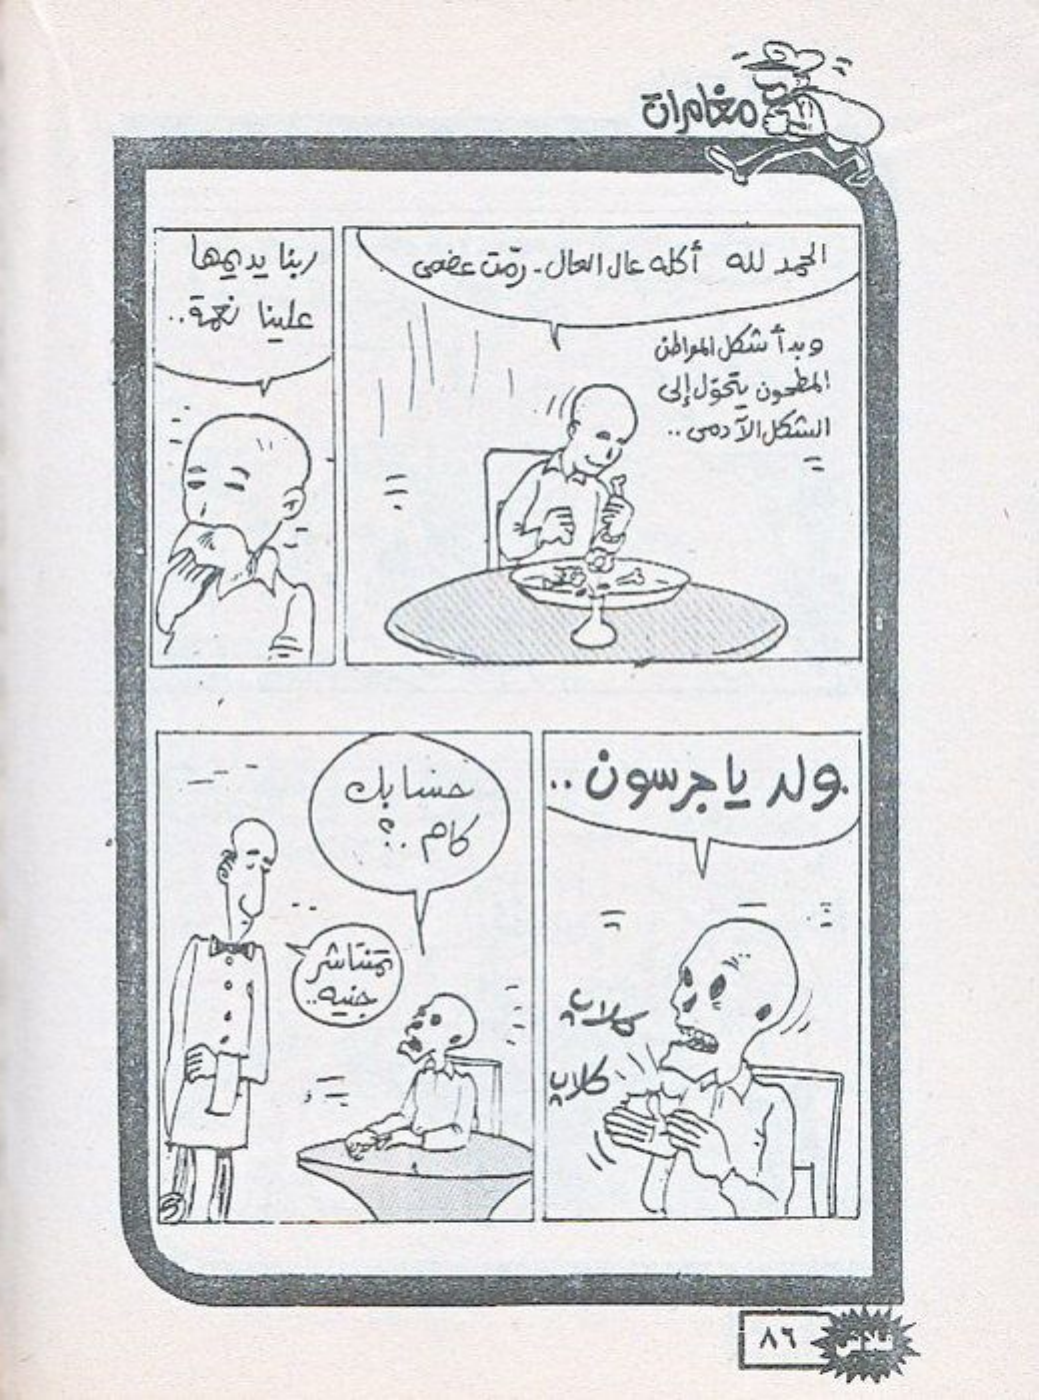 مغامرات
الحمد لله أكله عال العال - رمّت عضمى
وبدأ شكل المواطن
المطحون يتحوّل إلى
الشكل الآدمى ..
ربنا يديمها
علينا نعمة ..
ولد يا جرسون ..
كلاپ
كلاپ
حسابك
كام ..؟
تمنتاشر
جنيه ..
فلاش
٨٦